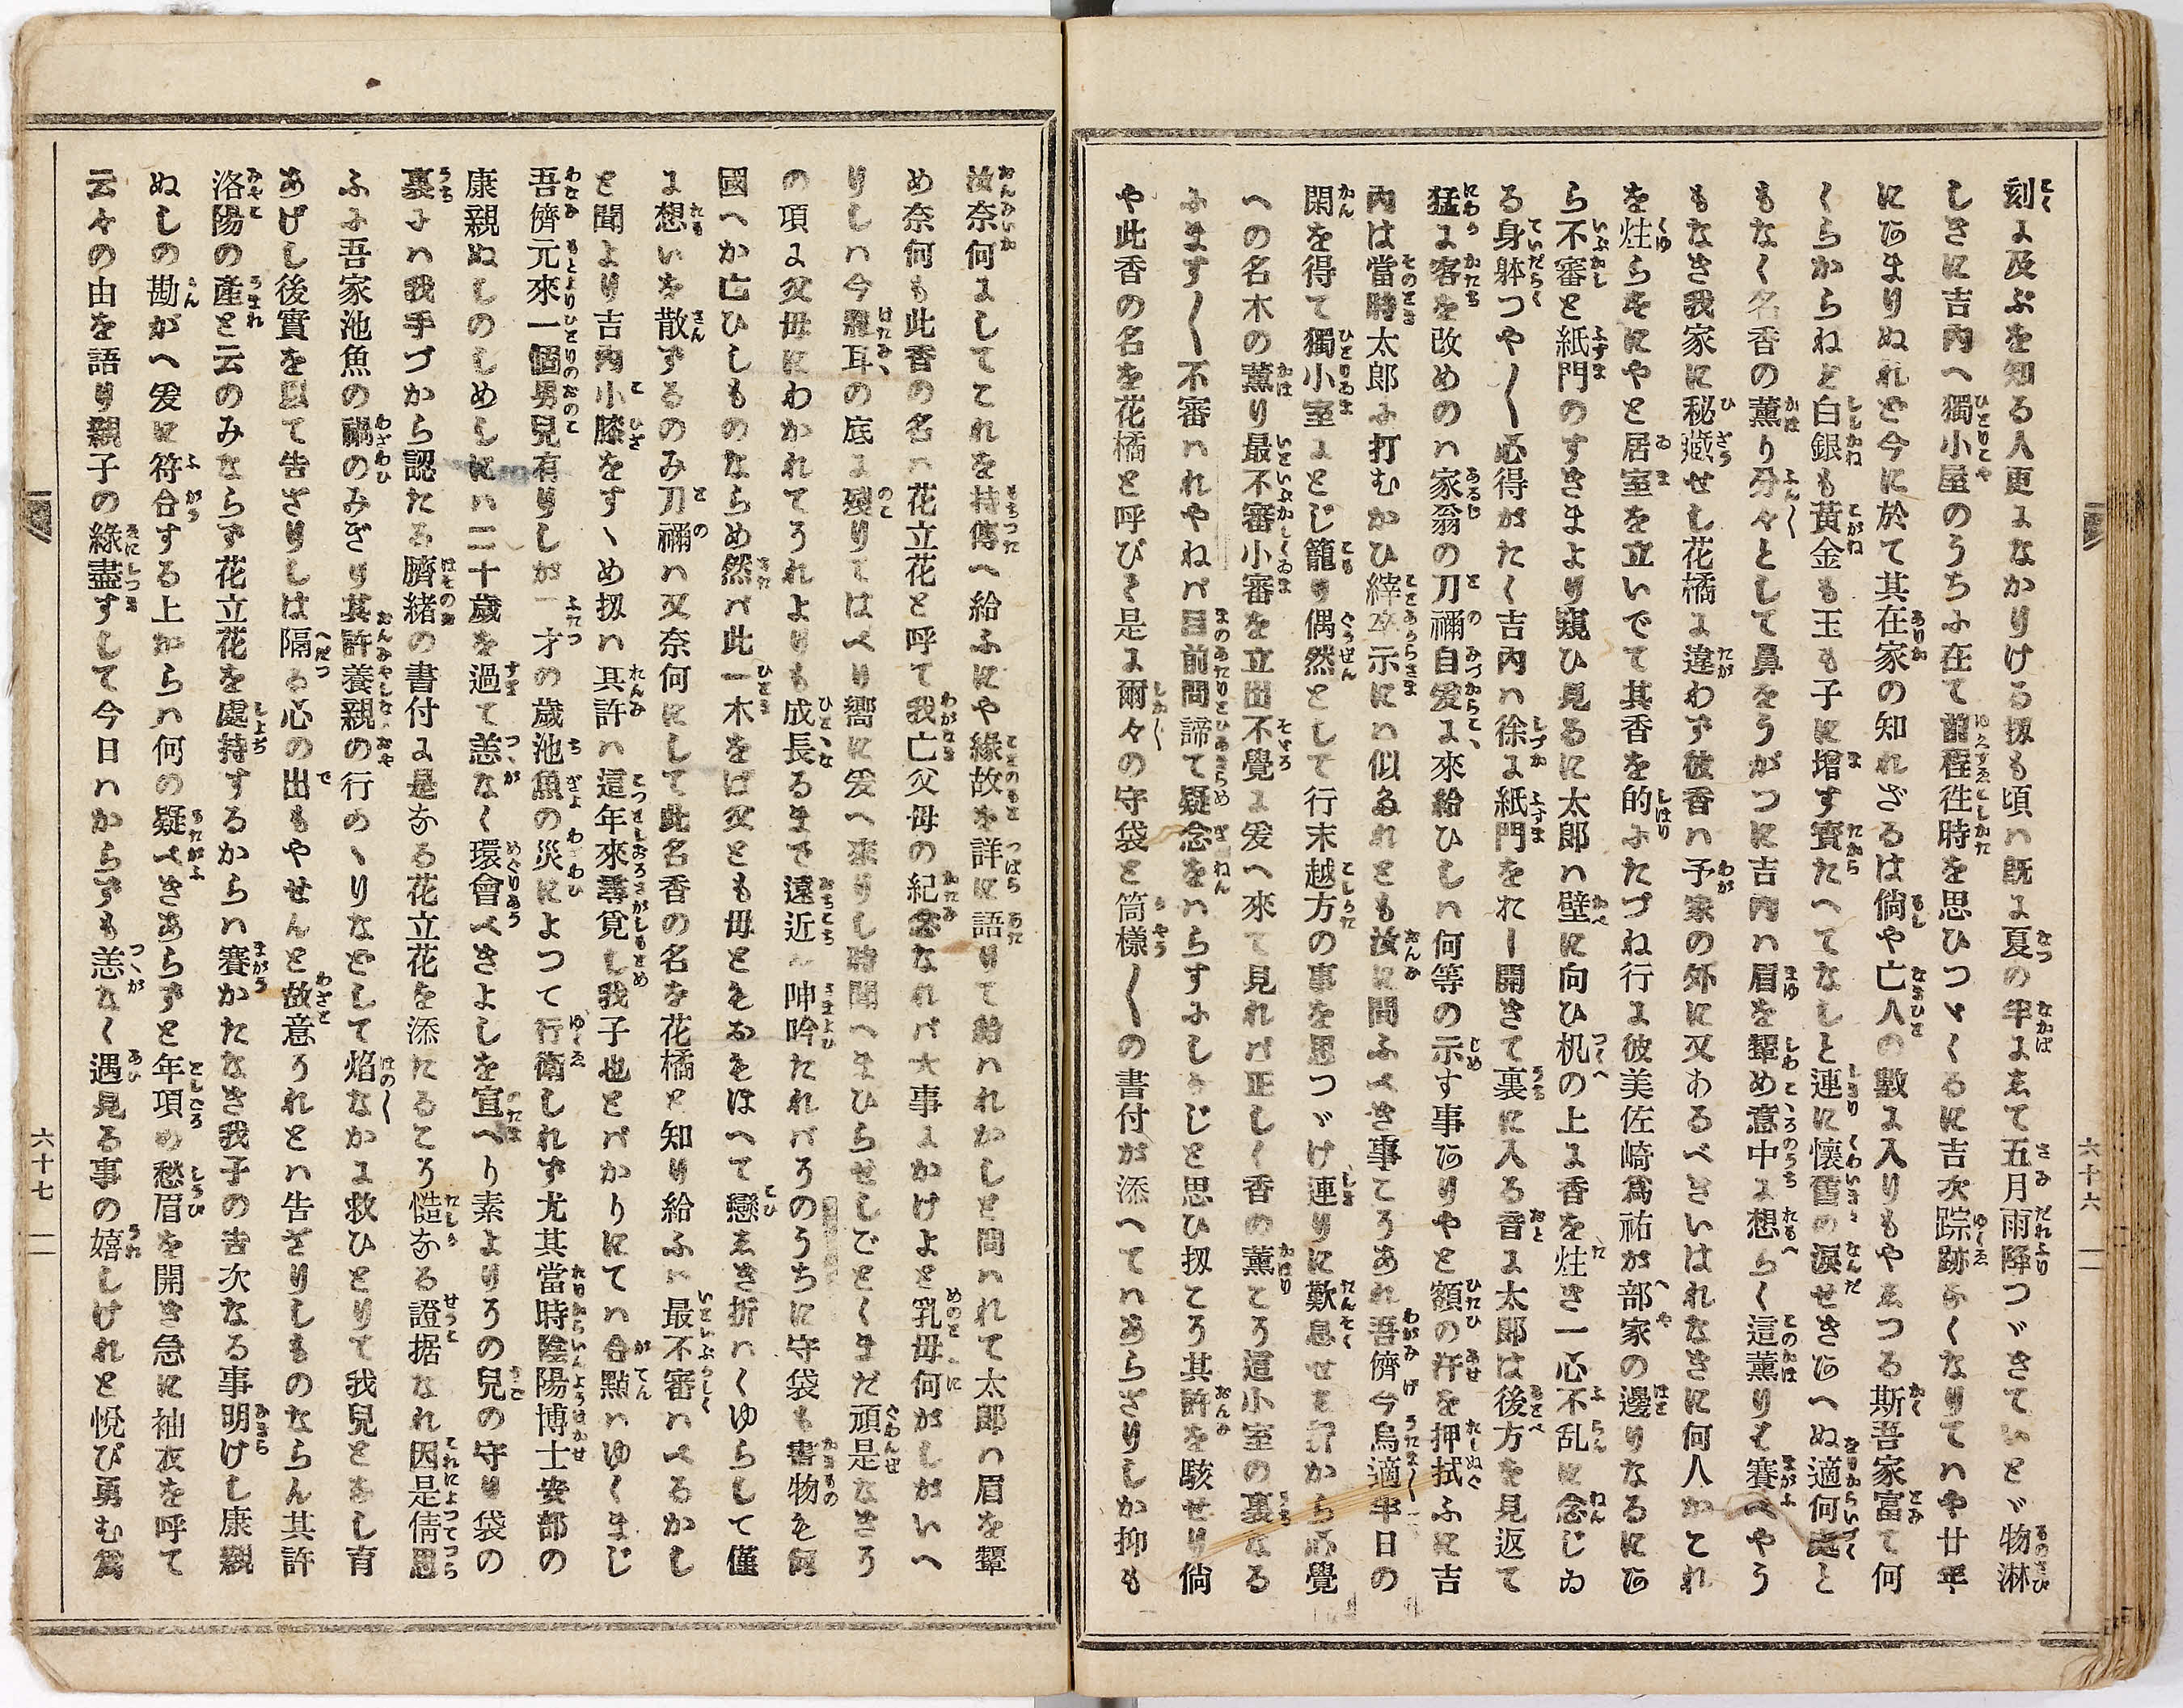 刻に及ぶを知る人更になかりける扨も頃ハ既に夏の半にゑて五月雨降つゞきていとゞ物淋
しきに吉内へ獨小屋のうちに在て前程徃時を思ひつゞくるに吉次踪跡なくなりてハや廿年
にあまりぬれど今に於て其在家の知れざるは倘や亡人の數に入りもやゑつる斯吾家富て何
くらからねど白銀も黄金も玉も子に増す寳たへてなしと連に懷舊の涙せきあへぬ適何處と
もなく名香の薫り分々として鼻をうがつに吉内ハ眉を顰め意中に想らく這薫りそ賽べやう
もなき我家に秘藏せし花橘に違わず彼香ハ予家の外に又あるべきいはれなきに何人かこれ
を炷らをにやと居室を立いでて其香を的にたづね行に彼美佐崎爲祐が部家の邊りなるにあ
ら不審と紙門のすきまより窺ひ見るに太郎ハ壁に向ひ机の上に香を炷き一心不乱に念じゐ
る身躰つや〱心得がたく吉内ハ徐に紙門をれし開きて裏に入る音に太郎は後方を見返て
猛に客を改めのハ家翁の刀禰自爰に來給ひしハ何等の示す事ありやと額の汗を押拭ふに吉
内は當時太郎に打むかひ縡卒示にハ似るれども汝に問ふべき事こうあれ吾儕今烏適半日の
閑を得て獨小室にとじ籠り偶然として行末越方の事を思つゞけ連りに歎息せし折から不覺
への名木の薫り最不審小審を立出不覺に爰へ來て見れバ正しく香の薫こう這小室の裏なる
にます〱不審ハれやねバ目前問諦て疑念をハらすにしうじと思ひ扨こう其許を駭せり倘
や此香の名を花橘と呼びそ是に爾々の守袋と筒樣〱の書付が添へてハあらざりしか抑も
六十六
汝奈何にしてこれを持傳へ給ふにや縁故を詳に語りて給ハれかしと問ハれて太郎ハ眉を顰
め奈何も此香の名ハ花立花と呼て我亡父母の紀念なれバ大事にかけよと乳母何がしがいへ
りしハ今猶耳の底に殘りてはべり嚮に爰へ來りし時聞へまひらせしごとくまだ頑是なきう
の項に父母にわかれてうれよりも成長るまで遠近へ呻吟たれバうのうちに守袋も書物も何
國へか亡ひしものならめ然バ此一木をば父とも母ともおもほへて戀ゑき折ハくゆらして僅
に想いを散ずるのみ刀禰ハ又奈何にして此名香の名を花橘と知り給ふハ最不審ハべるかし
と聞より吉内小膝をすゝめ扨ハ其許ハ這年來尋覓し我子也とバかりにてハ合點ハゆくまじ
吾儕元來一個男兒有りしが二才の歳池魚の災によつて行衛しれず尤其當時陰陽博士安部の
康親ぬしのしめしにハ二十歳を過て恙なく環會べきよしを宣へり素よりうの兒の守り袋の
裏にハ我手づから認たる臍緒の書付に是なる花立花を添たるこう慥なる證据なれ因是倩思
ふに吾家池魚の禍のみぎり其許養親の行のゝりなどして焰なかに救ひとりて我兒となし育
あげし後實を以て告ざりしは隔る心の出もやせんと故意うれとハ告ざりしものならん其許
洛陽の産と云のみならず花立花を處持するからハ賽かたなき我子の吉次なる事明けし康親
ぬしの勘がへ爰に符合する上からハ何の疑べきあらずと年項の愁眉を開き急に袖衣を呼て
云々の由を語り親子の縁盡ずして今日ハからずも恙なく遇見る事の嬉しけれと悦び勇む爲
六十七